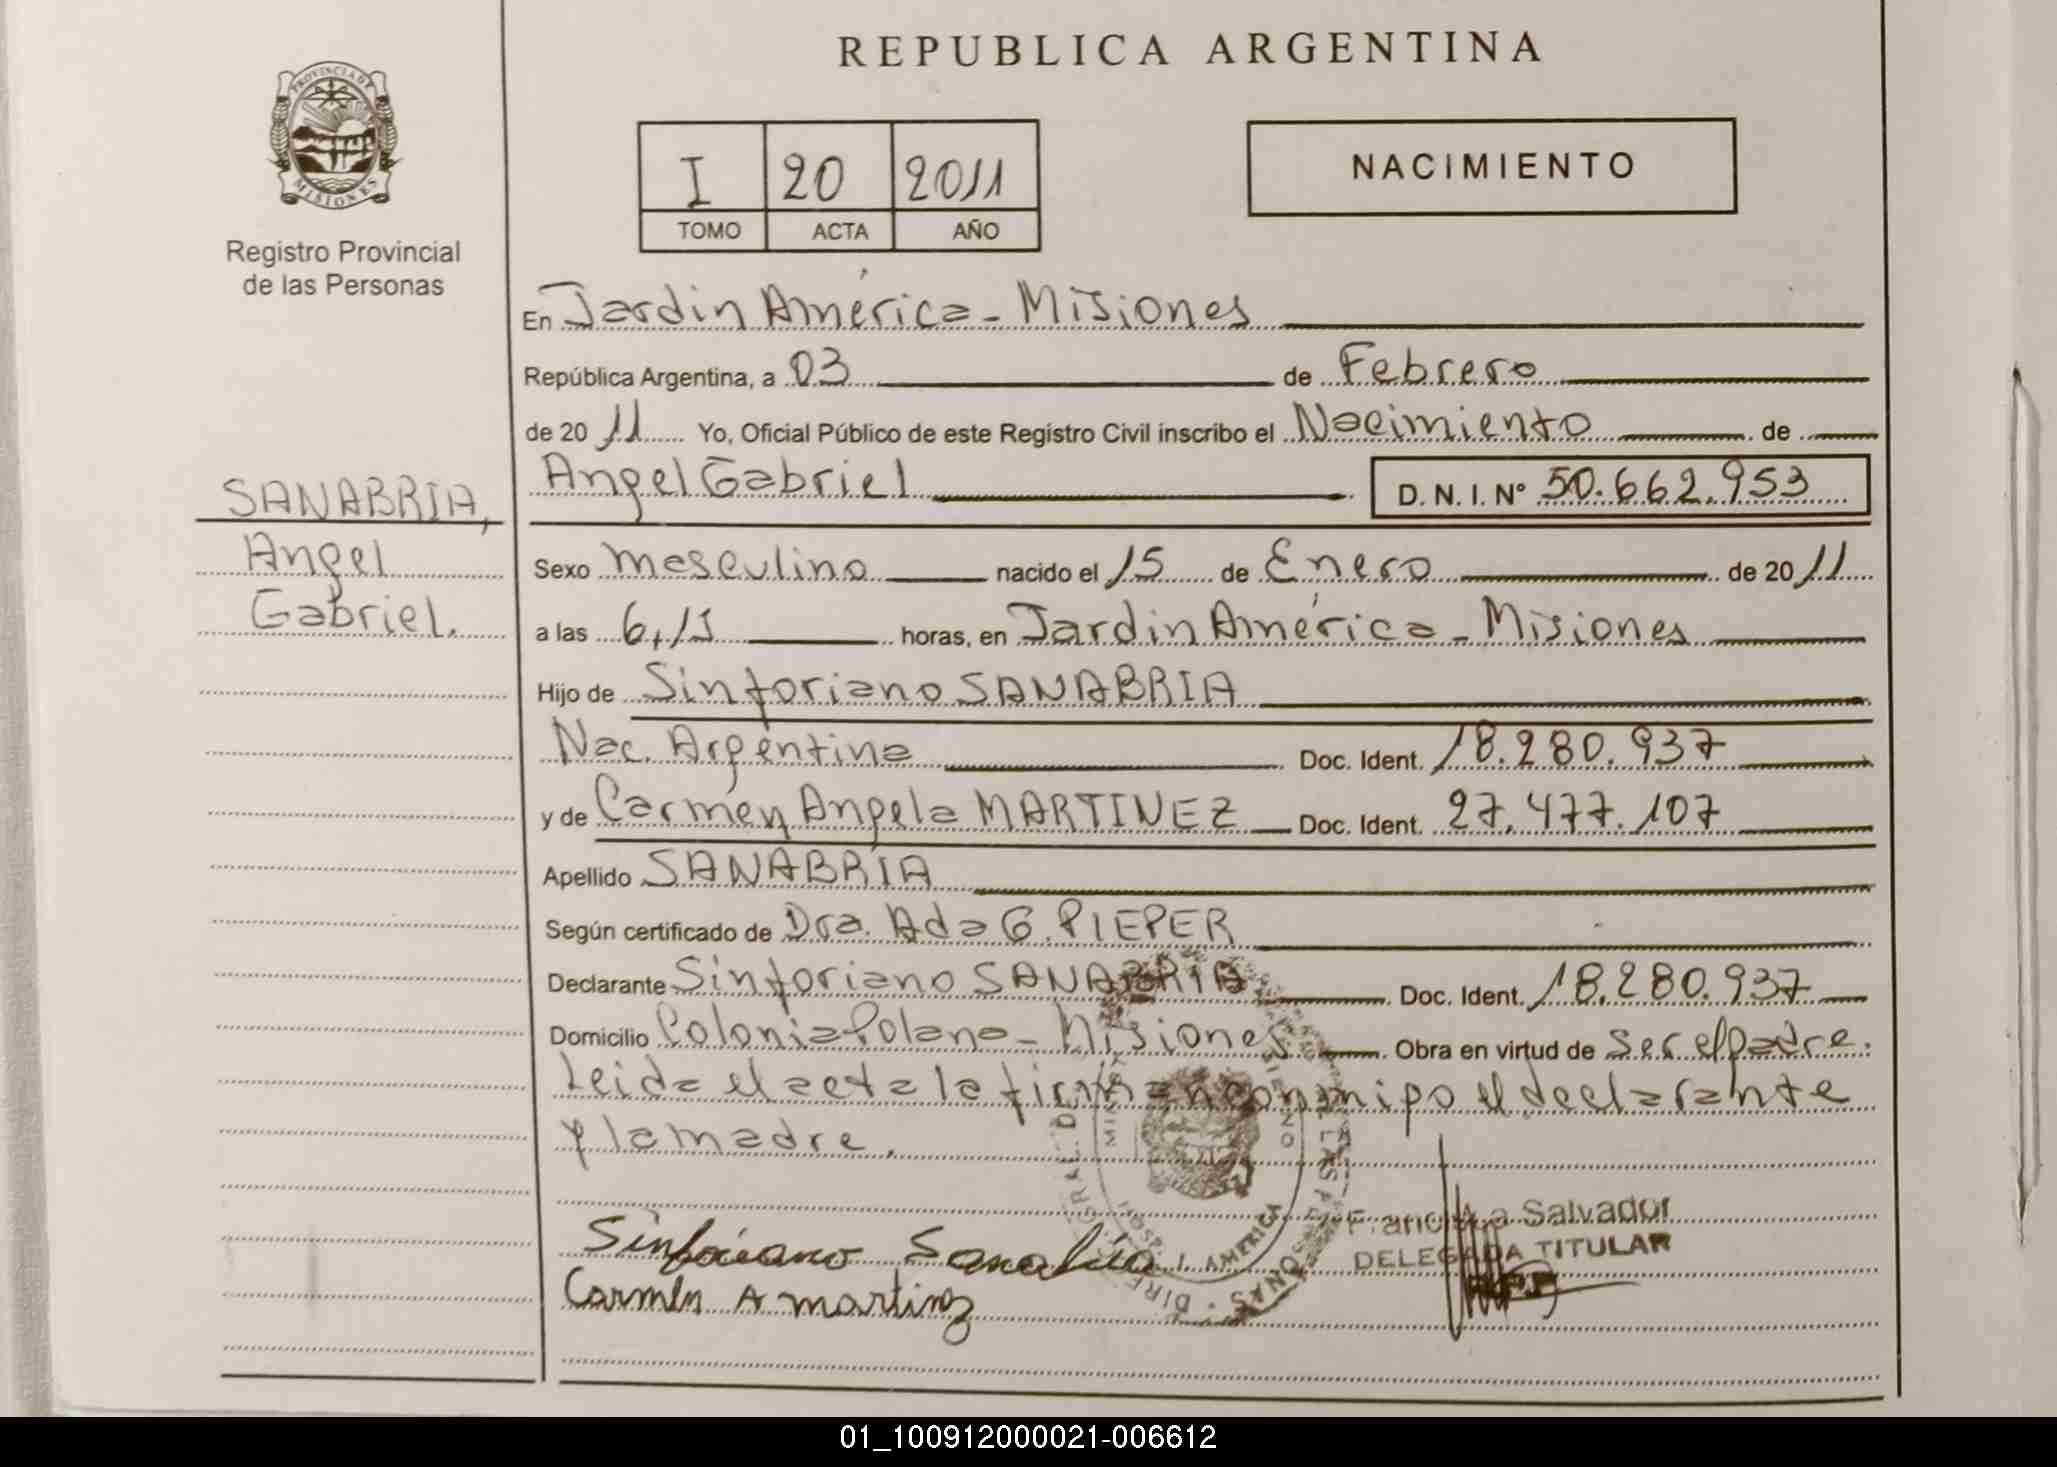 REPUBLICA ARGENTINA
PROVINCIA DE MISIONES
Registro Provincial
de las Personas
I 20 2011
TOMO ACTA AÑO
NACIMIENTO
En Jardin América - Misiones
República Argentina, a 03 de Febrero
de 20 11 Yo, Oficial Público de este Registro Civil inscribo el Nacimiento de
Angel Gabriel D. N. I. Nº 50.662.953
SANABRIA,
Angel
Gabriel.
Sexo masculino nacido el 15 de Enero de 20 11
a las horas, en Jardin América - Misiones
Hijo de Sinforiano SANABRIA
Nac. Argentina Doc. Ident. 18.280.937
y de Carmen Angela MARTINEZ Doc. Ident. 27.477.107
Apellido SANABRIA
Según certificado de Dra. Ada G. PIEPER
Declarante Sinforiano SANABRIA Doc. Ident. 18.280.937
Domicilio Colonia Polana - Misiones Obra en virtud de ser el padre.
Leida el acta la firman conmigo el declarante
y la madre.
Sinforiano Sanabria
Carmen A martinez
Salvador
DELEGADA TITULAR
01_100912000021-006612